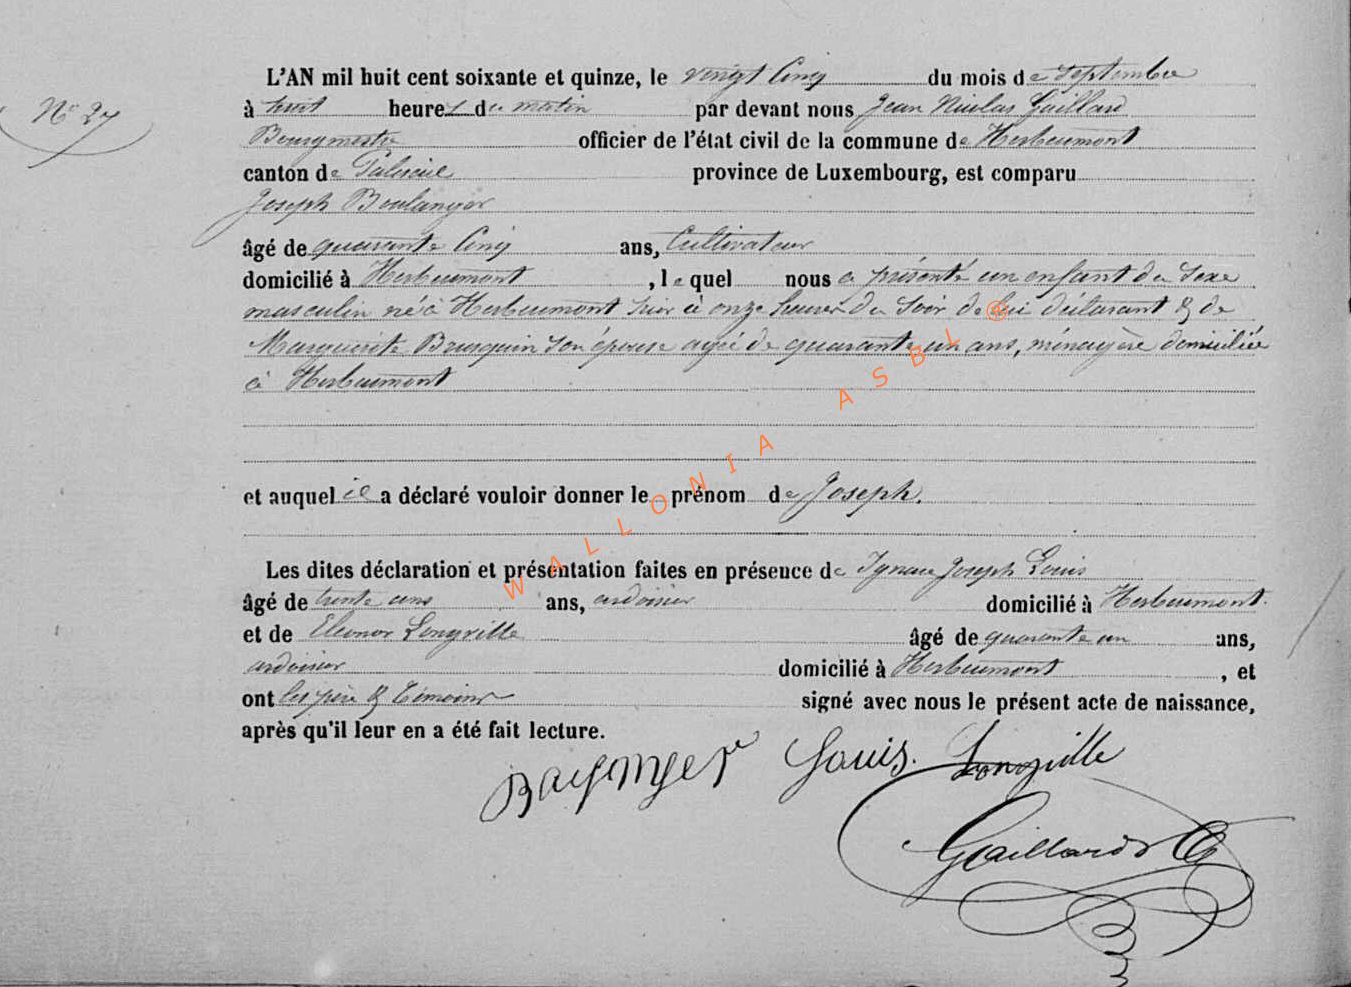 L'AN mil huit cent soixante et quinze, le vingt Cinq du mois de Septembre
N° 27
à huit heures du matin par devant nous Jean Nicolas Gaillard
Bourgmestre officier de l'état civil de la commune de Herbeumont
canton de Paliseul province de Luxembourg, est comparu
Joseph Boulanger
âgé de quarante Cinq ans, Cultivateur
domicilié à Herbeumont, lequel nous a présenté un enfant du Sexe
masculin né à Herbeumont hier à onze heures du Soir de lui déclarant & de
Marguerite Brusquin Son épouse agée de quarante un ans, ménagère domiciliée
à Herbeumont
et auquel il a déclaré vouloir donner le prénom de Joseph.
Les dites déclaration et présentation faites en présence de Ignace Joseph Louis
âgé de trente ans ans, ardoisier domicilié à Herbeumont.
et de Eleonor Longville âgé de quarante un ans,
ardoisier domicilié à Herbeumont, et
ont les père & Témoins signé avec nous le présent acte de naissance,
après qu'il leur en a été fait lecture.
Louis. Longville
Gaillard
WALLONIA ASBL ®